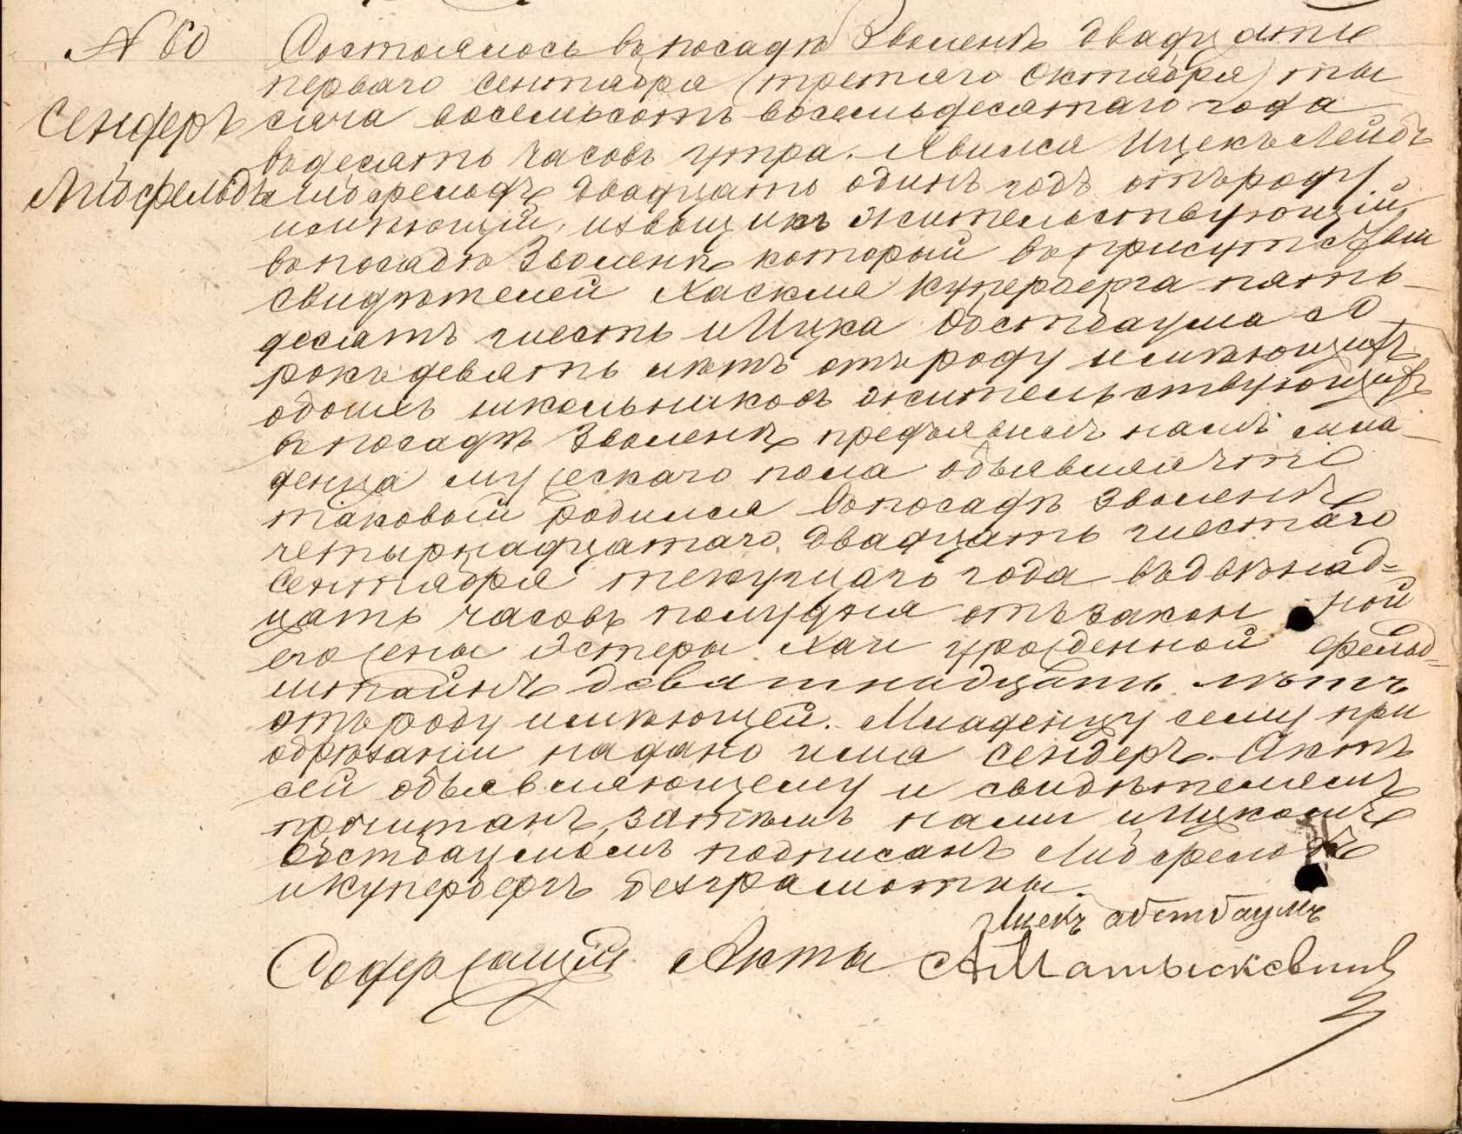 N 60
Сендеръ
Либфельдъ
Состоялось въ посадѣ Зволенѣ двадцать
перваго Сентября (третяго Октября) ты
сяча восемьсотъ восемьдесятаго года
въ десять часовъ утра. Явился Ицекъ Лейбъ
Либфельдъ двадцать одинъ годъ отъ роду
имѣющій, извощикъ жительствующій
въ посадѣ Зволенѣ который въ присутствіи
свидѣтелей Хаскля Купербергa пять-
десятъ шесть и Ицка Обстбаума со
рокъ девять лѣтъ отъ роду имѣющихъ
обоихъ школьниковъ жительствующихъ
въ посадѣ Зволенѣ предъявилъ намъ мла-
денца мужескаго пола объявляя что
таковой родился въ посадѣ Зволенѣ
четырнадцатаго, двадцать шестаго
Сентября текущаго года въ двѣнад=
цать часовъ полудня отъ закон ной
его жены Эстеры Хаи урожденной Фельд=
штайнъ девятнадцать лѣтъ
отъ роду имѣющей. Младенцу сему при
обрѣзаніи надано имя Сендеръ. Актъ
сей объявляющему и свидѣтелямъ
прочитанъ, затѣмъ нами и Ицкомъ
Обстбаумомъ подписанъ Либфельдъ
и Купербергъ безграмотны.
Ицекъ Абстбаумъ
Содержащій Акты